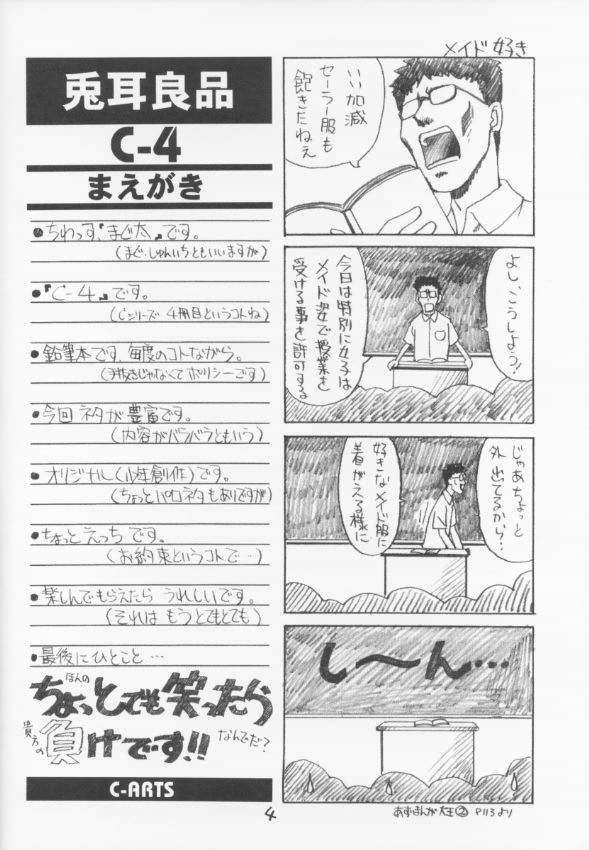 兎耳良品
C-4
まえがき
●ちわっす、『まぐ太』です。
(まぐ.じゅんいちともいいますが)
●『C-4』です。
(Cシリーズ 4冊目というコトね)
●鉛筆本です、毎度のコトながら。
(手抜きじゃなくてポリシーです)
●今回ネタが豊富です。
(内容がバラバラともいう)
●オリジナル(少年創作)です。
(ちょっとパロネタもありですが)
●ちょっとえっちです。
(お約束というコトで…)
●楽しんでもらえたら うれしいです。
(それは もうとてもとても)
●最後にひとこと…
ほんの
ちょっとでも笑ったら
貴方の
負けです!!
なんでだ?
C-ARTS
メイド好き
いい加減
セーラー服も
飽きたねえ
よし、こうしよう!
今日は特別に女子は
メイド姿で授業を
受ける事を許可する
じゃあちょっと
外出てるから…
好きなメイド服に
着がえる様に
し〜ん…
あずまんが大王② P113より
4